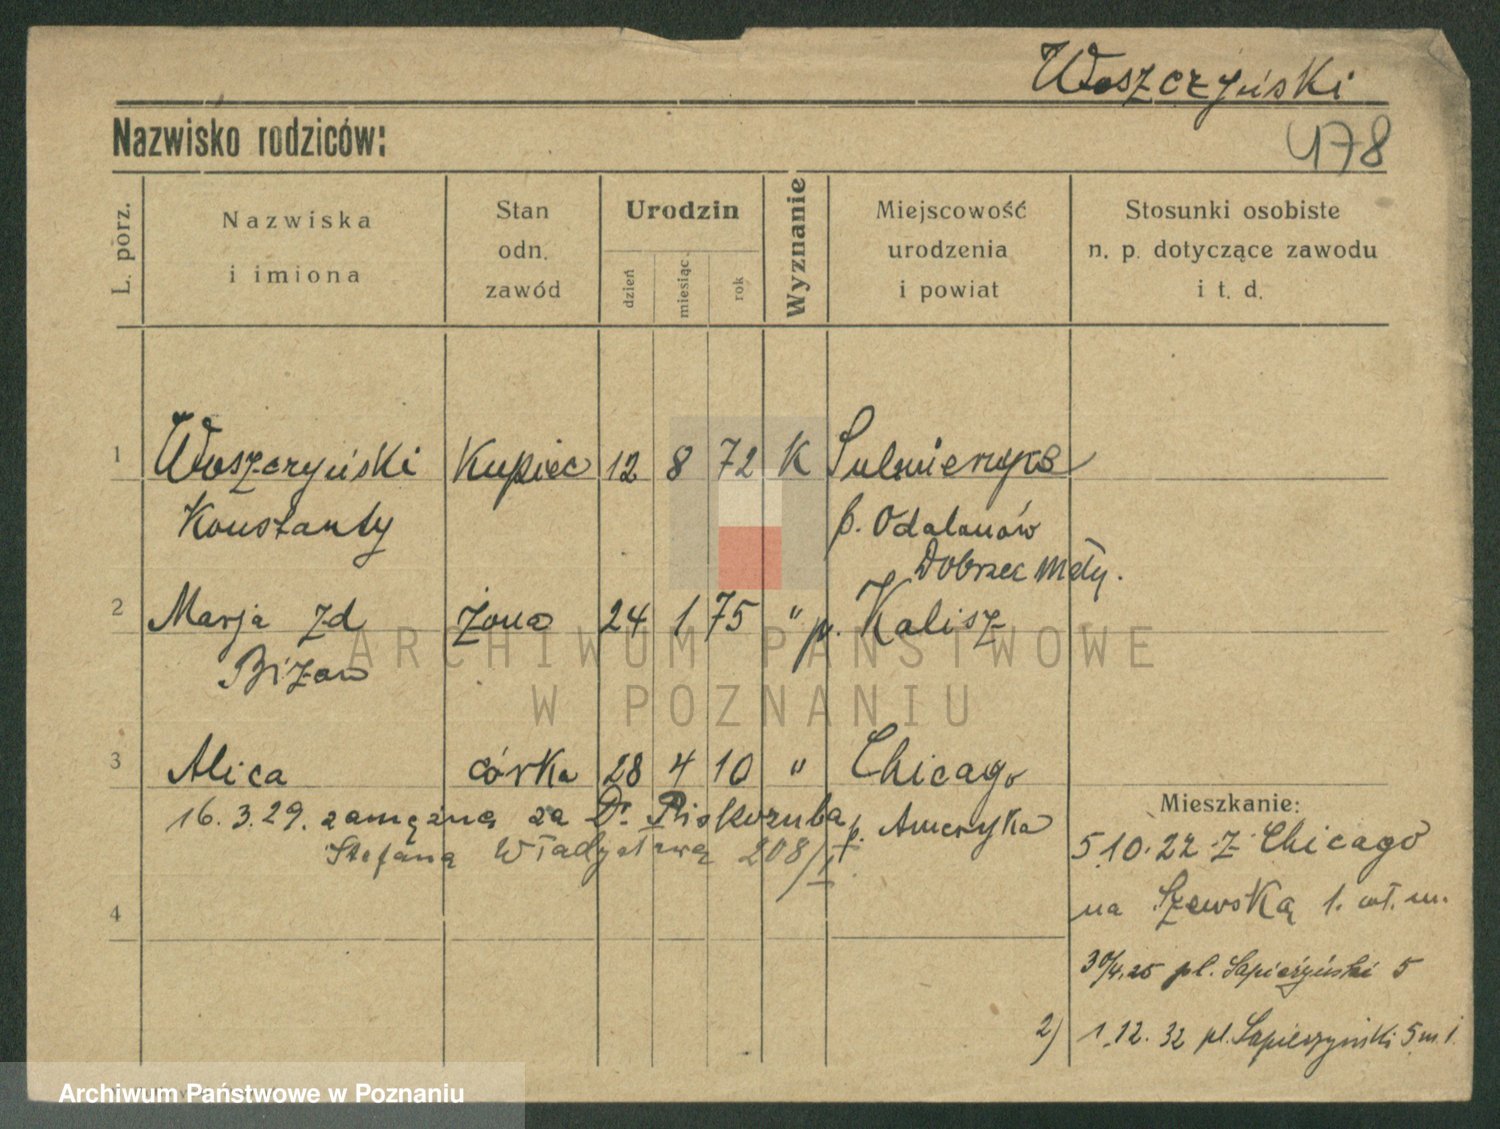 Woszczyński
Nazwisko rodziców:
478
L. porz.
Nazwiska
i imiona
Stan
odn.
zawód
Urodzin
dzień
miesiąc
rok
Wyznanie
Miejscowość
urodzenia
i powiat
Stosunki osobiste
n. p. dotyczące zawodu
i t. d.
1 Woszczyński Kupiec 12 8 72 K Sulmierzyce
Konstanty p. Odalanów
Dobrzec Mały.
2 Marja zd żona 24 1 75 " p. Kalisz
Bizan
ARCHIWUM PAŃSTWOWE
W POZNANIU
3 Alica córka 28 4 10 " Chicago
16.3.29. zamężna za Dr. Piskozuba p. Ameryka
Stefana Władysława 208/I
Mieszkanie:
5.10.22 z Chicago
4
na Szewską 1. wł. m.
30/4.25 pl. Sapieżyński 5
2) 1.12.32 pl. Sapieżyński 5 m. 1
Archiwum Państwowe w Poznaniu